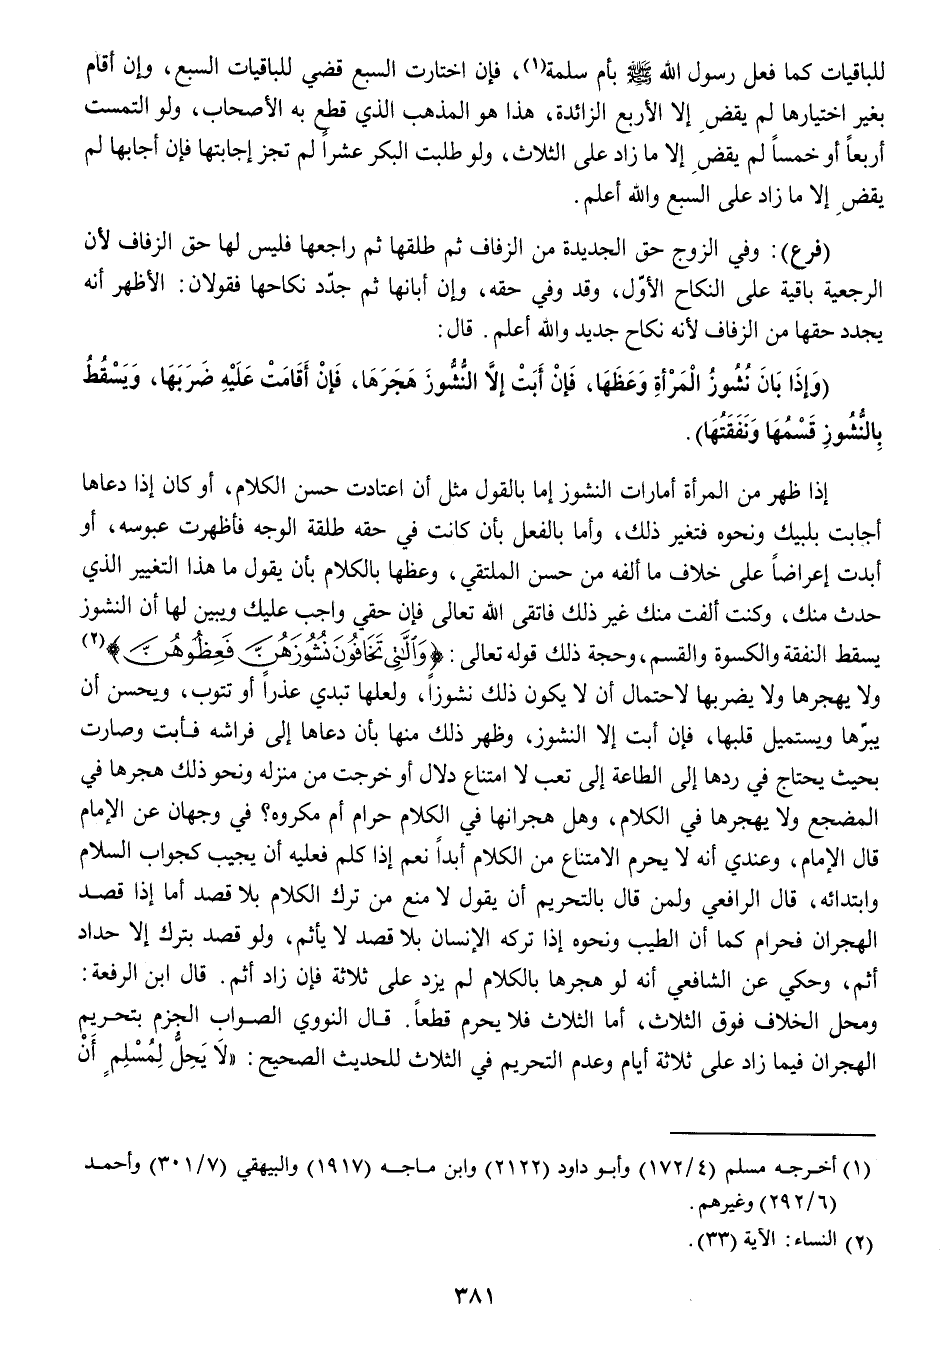 للباقيات كما فعل رسول الله ﷺ بأم سلمة(١)، فإن اختارت السبع قضي للباقيات السبع، وإن أقام
بغير اختيارها لم يقضِ إلا الأربع الزائدة، هذا هو المذهب الذي قطع به الأصحاب، ولو التمست
أربعاً أو خمساً لم يقضِ إلا ما زاد على الثلاث، ولو طلبت البكر عشراً لم تجز إجابتها فإن أجابها لم
يقضِ إلا ما زاد على السبع والله أعلم.
(فرع): وفي الزوج حق الجديدة من الزفاف ثم طلقها ثم راجعها فليس لها حق الزفاف لأن
الرجعية باقية على النكاح الأوّل، وقد وفي حقه، وإن أبانها ثم جدّد نكاحها فقولان: الأظهر أنه
يجدد حقها من الزفاف لأنه نكاح جديد والله أعلم. قال:
(وَإِذَا بَانَ نُشُوزُ الْمَرْأةِ وَعَظَهَا، فَإنْ أَبَتْ إلَّا النُّشُوزَ هَجَرَهَا، فَإنْ أَقَامَتْ عَلَيْهِ ضَرَبَهَا، وَيَسْقُطُ
بِالنُّشُوزِ قَسْمُهَا وَنَفَقَتُهَا).
إذا ظهر من المرأة أمارات النشوز إما بالقول مثل أن اعتادت حسن الكلام، أو كان إذا دعاها
أجابت بلبيك ونحوه فتغير ذلك، وأما بالفعل بأن كانت في حقه طلقة الوجه فأظهرت عبوسه، أو
أبدت إعراضاً على خلاف ما ألفه من حسن الملتقي، وعظها بالكلام بأن يقول ما هذا التغيير الذي
حدث منك، وكنت ألفت منك غير ذلك فاتقى الله تعالى فإن حقي واجب عليك ويبين لها أن النشوز
يسقط النفقة والكسوة والقسم، وحجة ذلك قوله تعالى: ﴿وَٱلَّٰتِى تَخَافُونَ نُشُوزَهُنَّ فَعِظُوهُنَّ﴾(٢)
ولا يهجرها ولا يضربها لاحتمال أن لا يكون ذلك نشوزاً، ولعلها تبدي عذراً أو تتوب، ويحسن أن
يبرّها ويستميل قلبها، فإن أبت إلا النشوز، وظهر ذلك منها بأن دعاها إلى فراشه فأبت وصارت
بحيث يحتاج في ردها إلى الطاعة إلى تعب لا امتناع دلال أو خرجت من منزله ونحو ذلك هجرها في
المضجع ولا يهجرها في الكلام، وهل هجرانها في الكلام حرام أم مكروه؟ في وجهان عن الإمام
قال الإمام، وعندي أنه لا يحرم الامتناع من الكلام أبداً نعم إذا كلم فعليه أن يجيب كجواب السلام
وابتدائه، قال الرافعي ولمن قال بالتحريم أن يقول لا منع من ترك الكلام بلا قصد أما إذا قصد
الهجران فحرام كما أن الطيب ونحوه إذا تركه الإنسان بلا قصد لا يأثم، ولو قصد بترك إلا حداد
أثم، وحكي عن الشافعي أنه لو هجرها بالكلام لم يزد على ثلاثة فإن زاد أثم. قال ابن الرفعة:
ومحل الخلاف فوق الثلاث، أما الثلاث فلا يحرم قطعاً. قال النووي الصواب الجزم بتحريم
الهجران فيما زاد على ثلاثة أيام وعدم التحريم في الثلاث للحديث الصحيح: «لَا يَحِلُّ لِمُسْلِمٍ أَنْ
(١) أخرجه مسلم (١٧٢/٤) وأبو داود (٢١٢٢) وابن ماجه (١٩١٧) والبيهقي (٣٠١/٧) وأحمد
(٢٩٢/٦) وغيرهم.
(٢) النساء: الآية (٣٣).
٣٨١